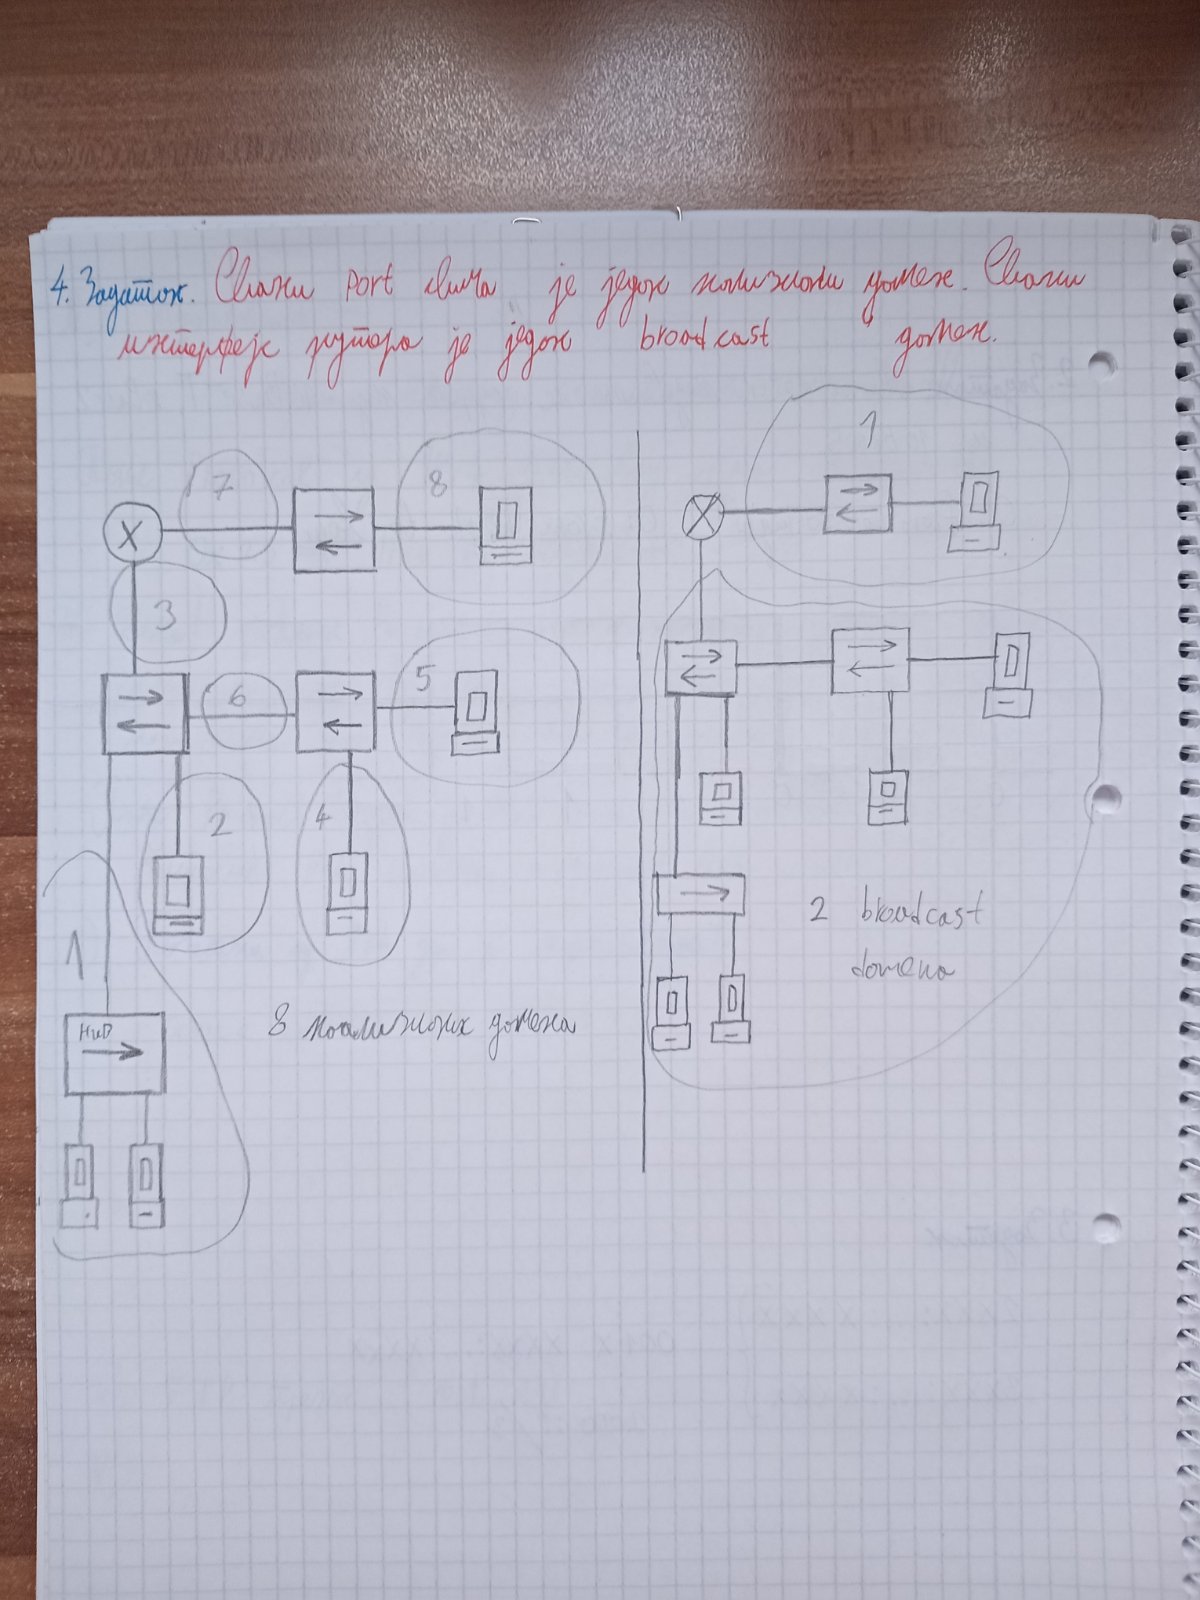 4. Задатак. Сваки port свича је један колизиони домен. Сваки
интерфејс рутера је један broadcast домен.
7
8
X
3
6
5
2
4
1
HUB
8 коализионих домена
1
X
2 broadcast
domena